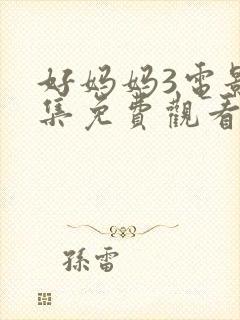 好妈妈3电影
集免費觀看
孫雷